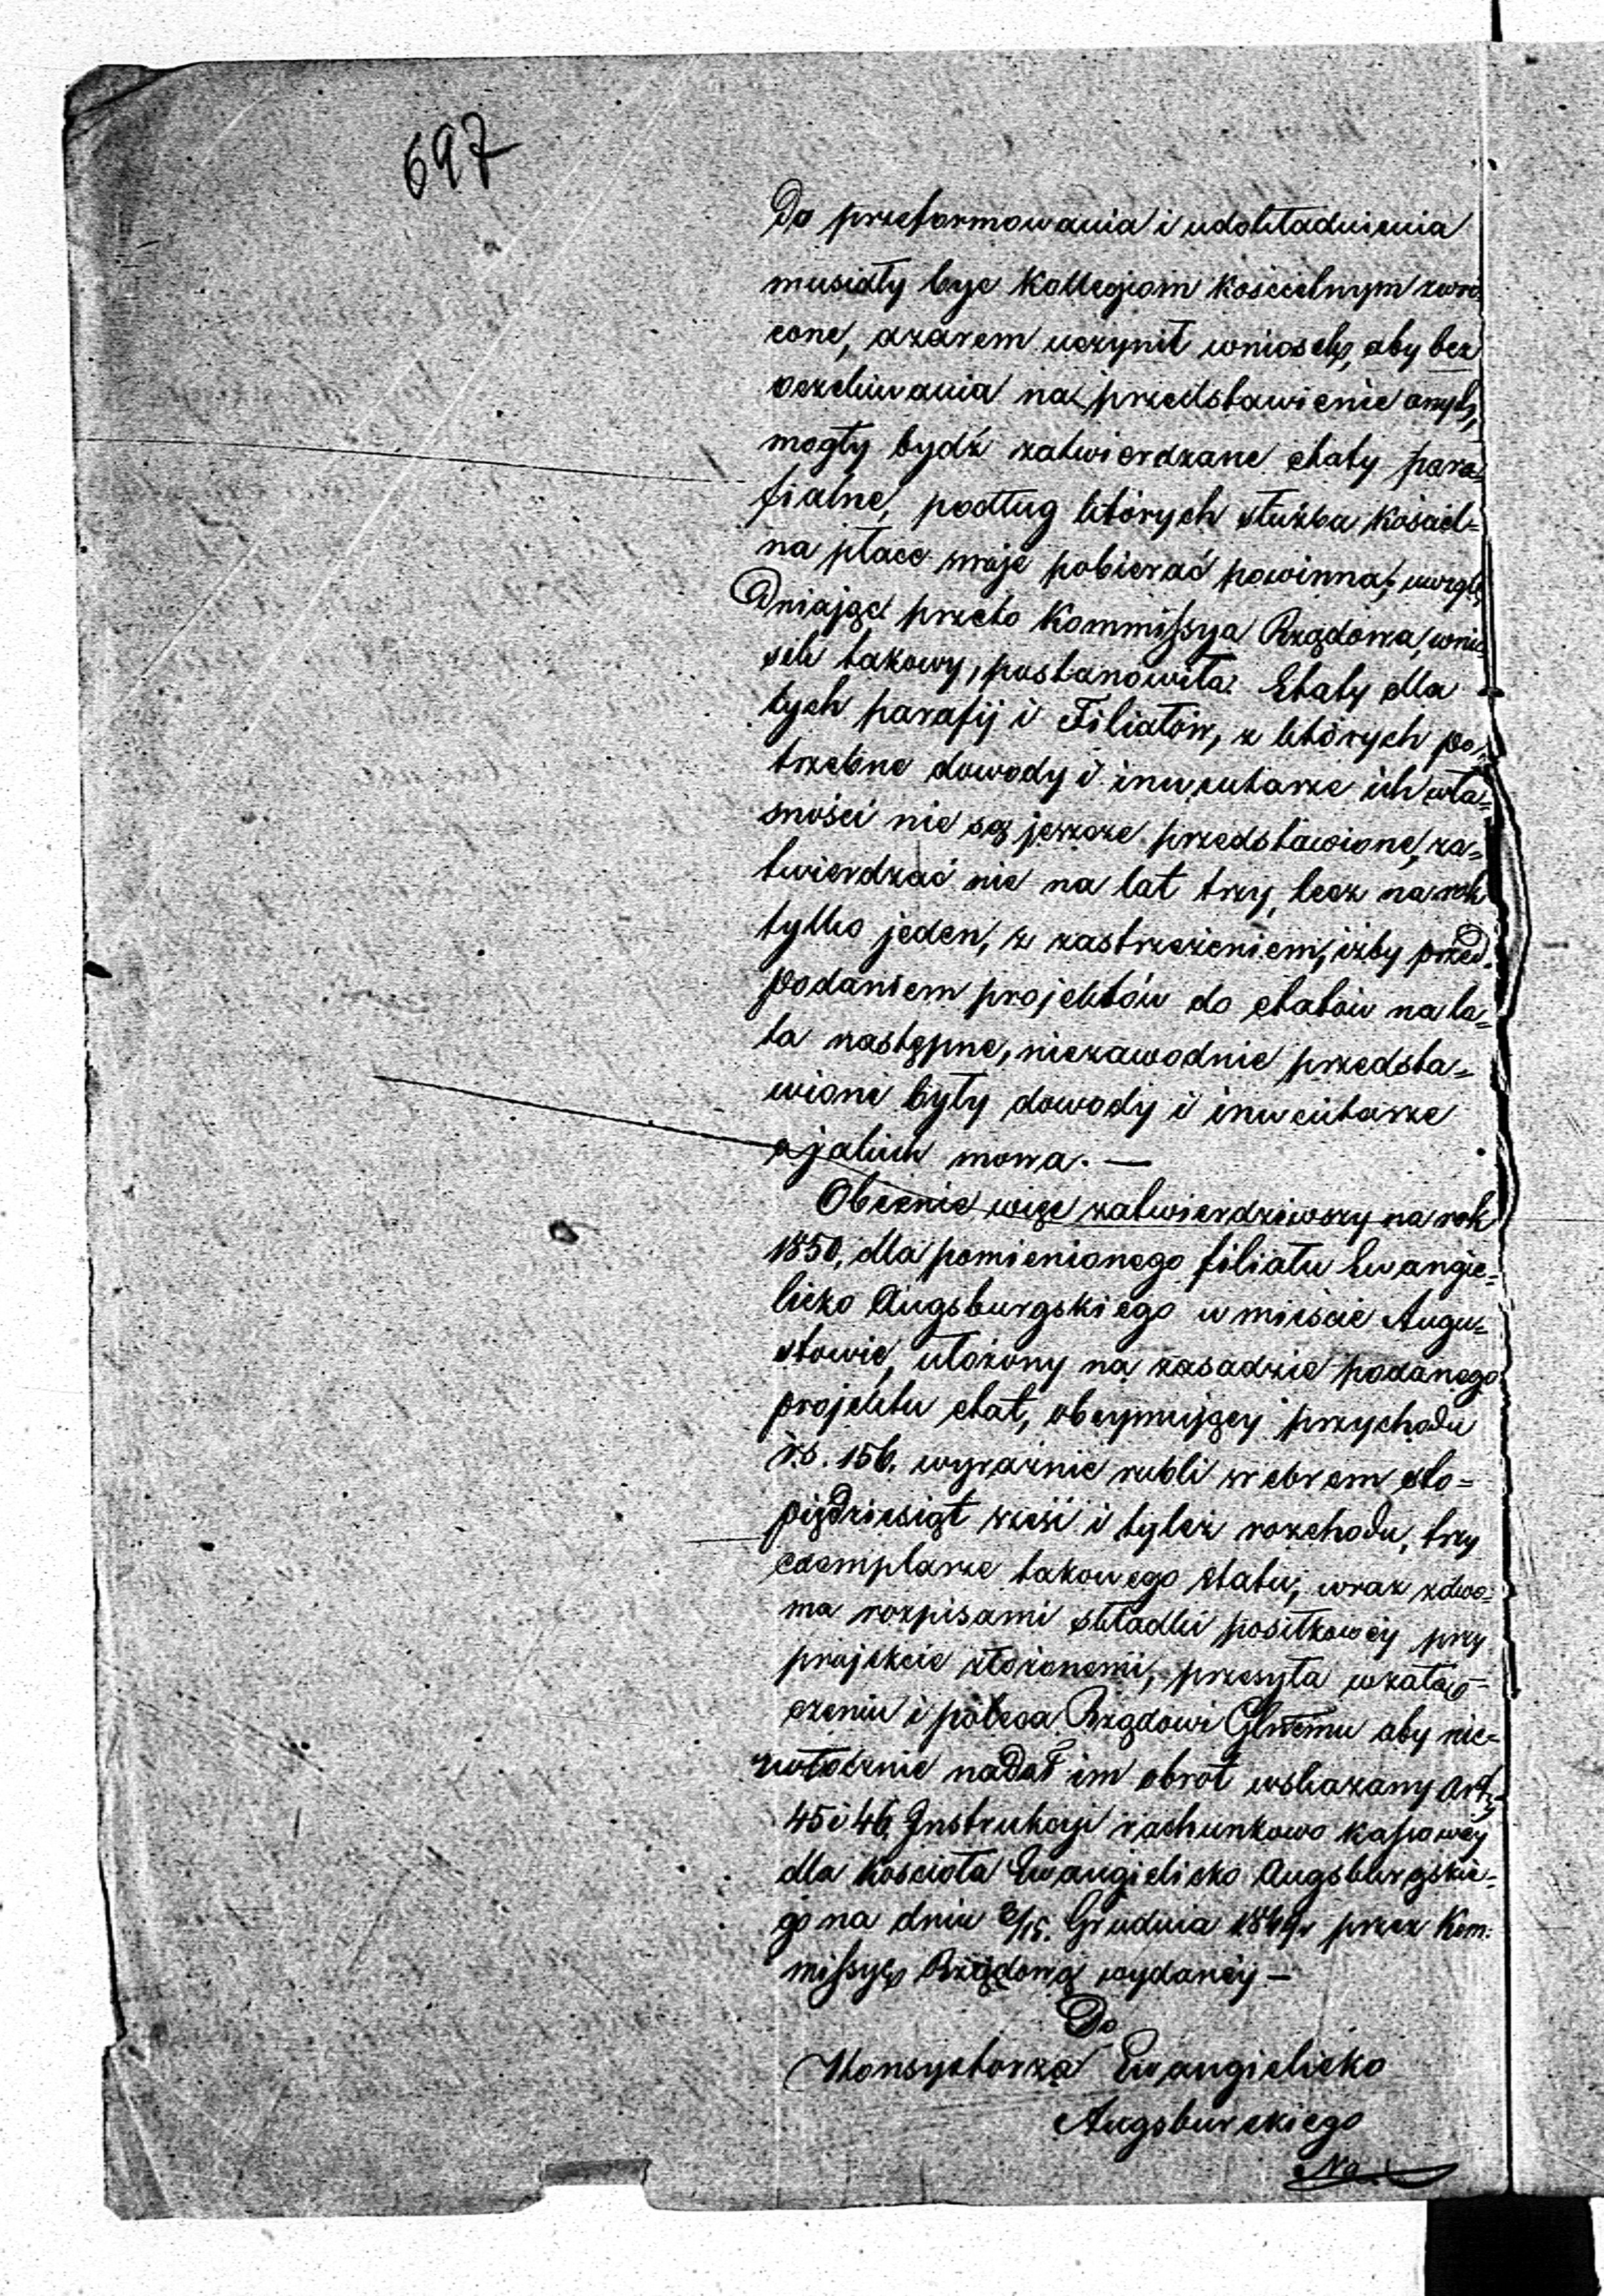 697
Do przeformowania i udokładnienia
musiały być Kollegiom Kościelnym zwró
cone, azarem uczynił wniosek, aby bez
oczekiwania na przedstawienie onych,
mogły bydź zatwierdzane etaty para=
fialne, podług których służba Kościel=
na płace swoje pobierać powinna; uwzglę
dniając przeto Kommissya Rządowa, wnio
sek takowy, postanowiła: Etaty dla
tych parafij i Filiałów, z których po=
trzebne dowody i inwentarze ich wła=
sności nie są jeszcze przedstawione, za=
twierdzać nie na lat trzy, lecz na rok
tylko jeden, z zastrzeżeniem, iżby przed
podaniem projektów do etatów na la=
ta następne, niezawodnie przedsta=
wione były dowody i inwentarze
o jakich mowa. —
Obecnie więc zatwierdziwszy na rok
1850, dla pomienionego filiału Ewangie=
licko Augsburgskiego w mieście Augu=
stowie, ułożony na zasadzie podanego
projektu etat, obeymujący przychodu
r.s. 156. wyraźnie rubli srebrem sto=
piędziesiąt sześć i tyleż rozchodu, trzy
exemplarze takowego etatu, wraz zdwo=
ma rozpisami składki posiłkowéy przy
projekcie złożonemi, przesyła wzałą=
czeniu i poleca Rządowi Glnemu aby nie=
zwłocznie nadał im obrot wskazany Art.
45 i 46 Instrukcyi rachunkowo kassowéy
dla Kościoła Ewangielicko Augsburgskie=
go na dniu 3/15. Grudnia 1849 r przez Kom=
missyę Rządową wydanéy —
Do
Konsystorza Ewangielicko
Augsburskiego
No